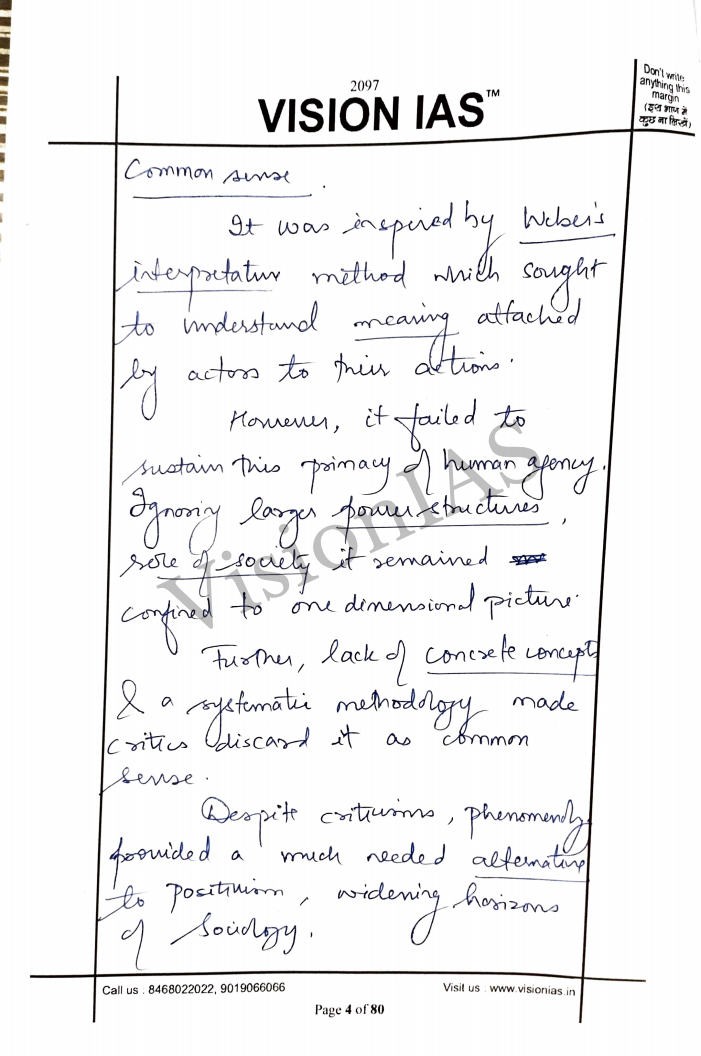 2097
VISION IAS™
Don't write
anything this
margin
(इस भाग में
कुछ ना लिखें)
Common sense.
It was inspired by Weber's
interpretative method which sought
to understand meaning attached
by actors to their actions.
However, it failed to
sustain this primacy of human agency.
Ignoring larger power structures,
role of society it remained
confined to one dimensional picture.
Further, lack of concrete concepts
& a systematic methodology made
critics discard it as common
sense.
Despite criticisms, phenomenology
provided a much needed alternative
to positivism, widening horizons
of sociology.
VisionIAS
Call us : 8468022022, 9019066066
Visit us : www.visionias.in
Page 4 of 80